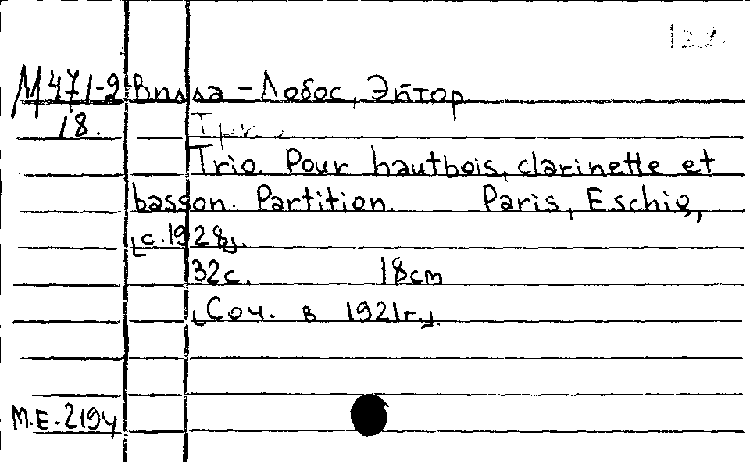 М471-2 Вилла-Лобос, Эйтор
18.
Trio. Pour hautbois, clarinette et
basson. Partition. Paris, Eschig,
[c.1928].
32с. 18cm
[Соч. в 1921г.]
M.E.-2194